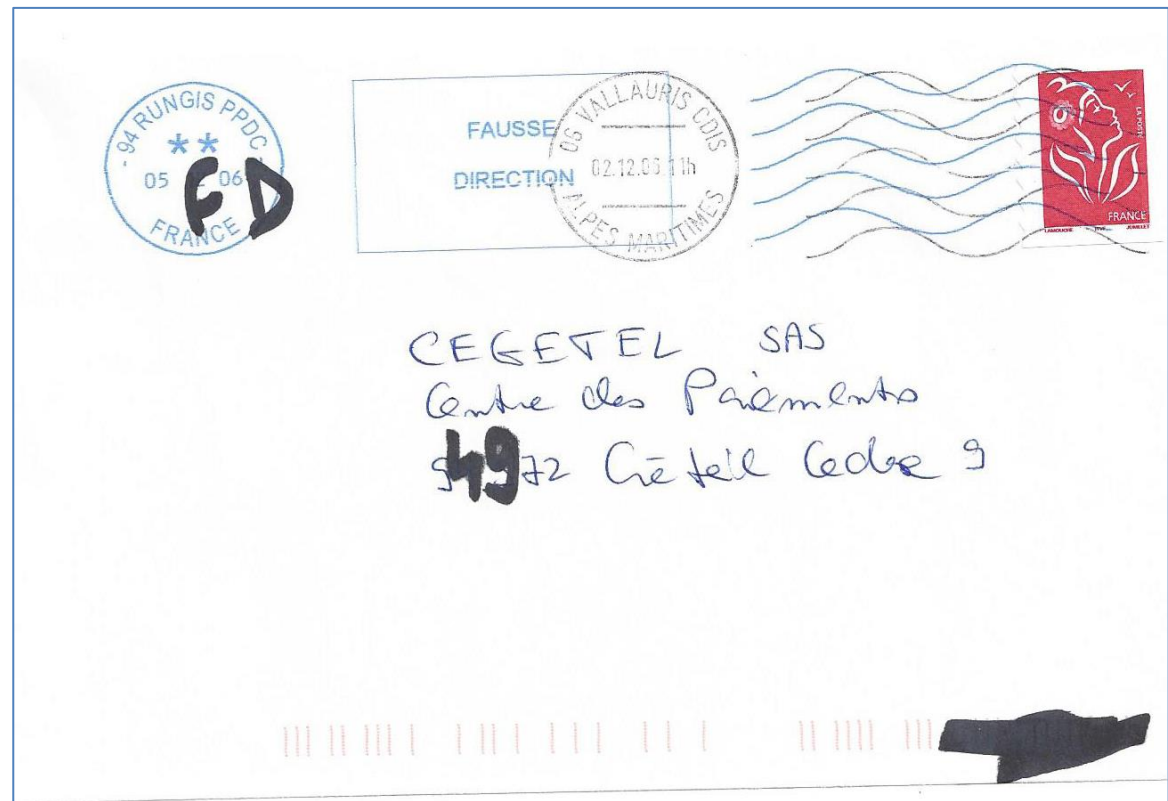 - 94 RUNGIS PPDC -
**
05 06
FRANCE
FD
FAUSSE
DIRECTION
06 VALLAURIS CDIS
02.12.06 11h
ALPES MARITIMES
LA POSTE
FRANCE
LAMOUCHE ITVF JUMELET
CEGETEL SAS
Centre des Paiements
94972 Créteil Cedex 9